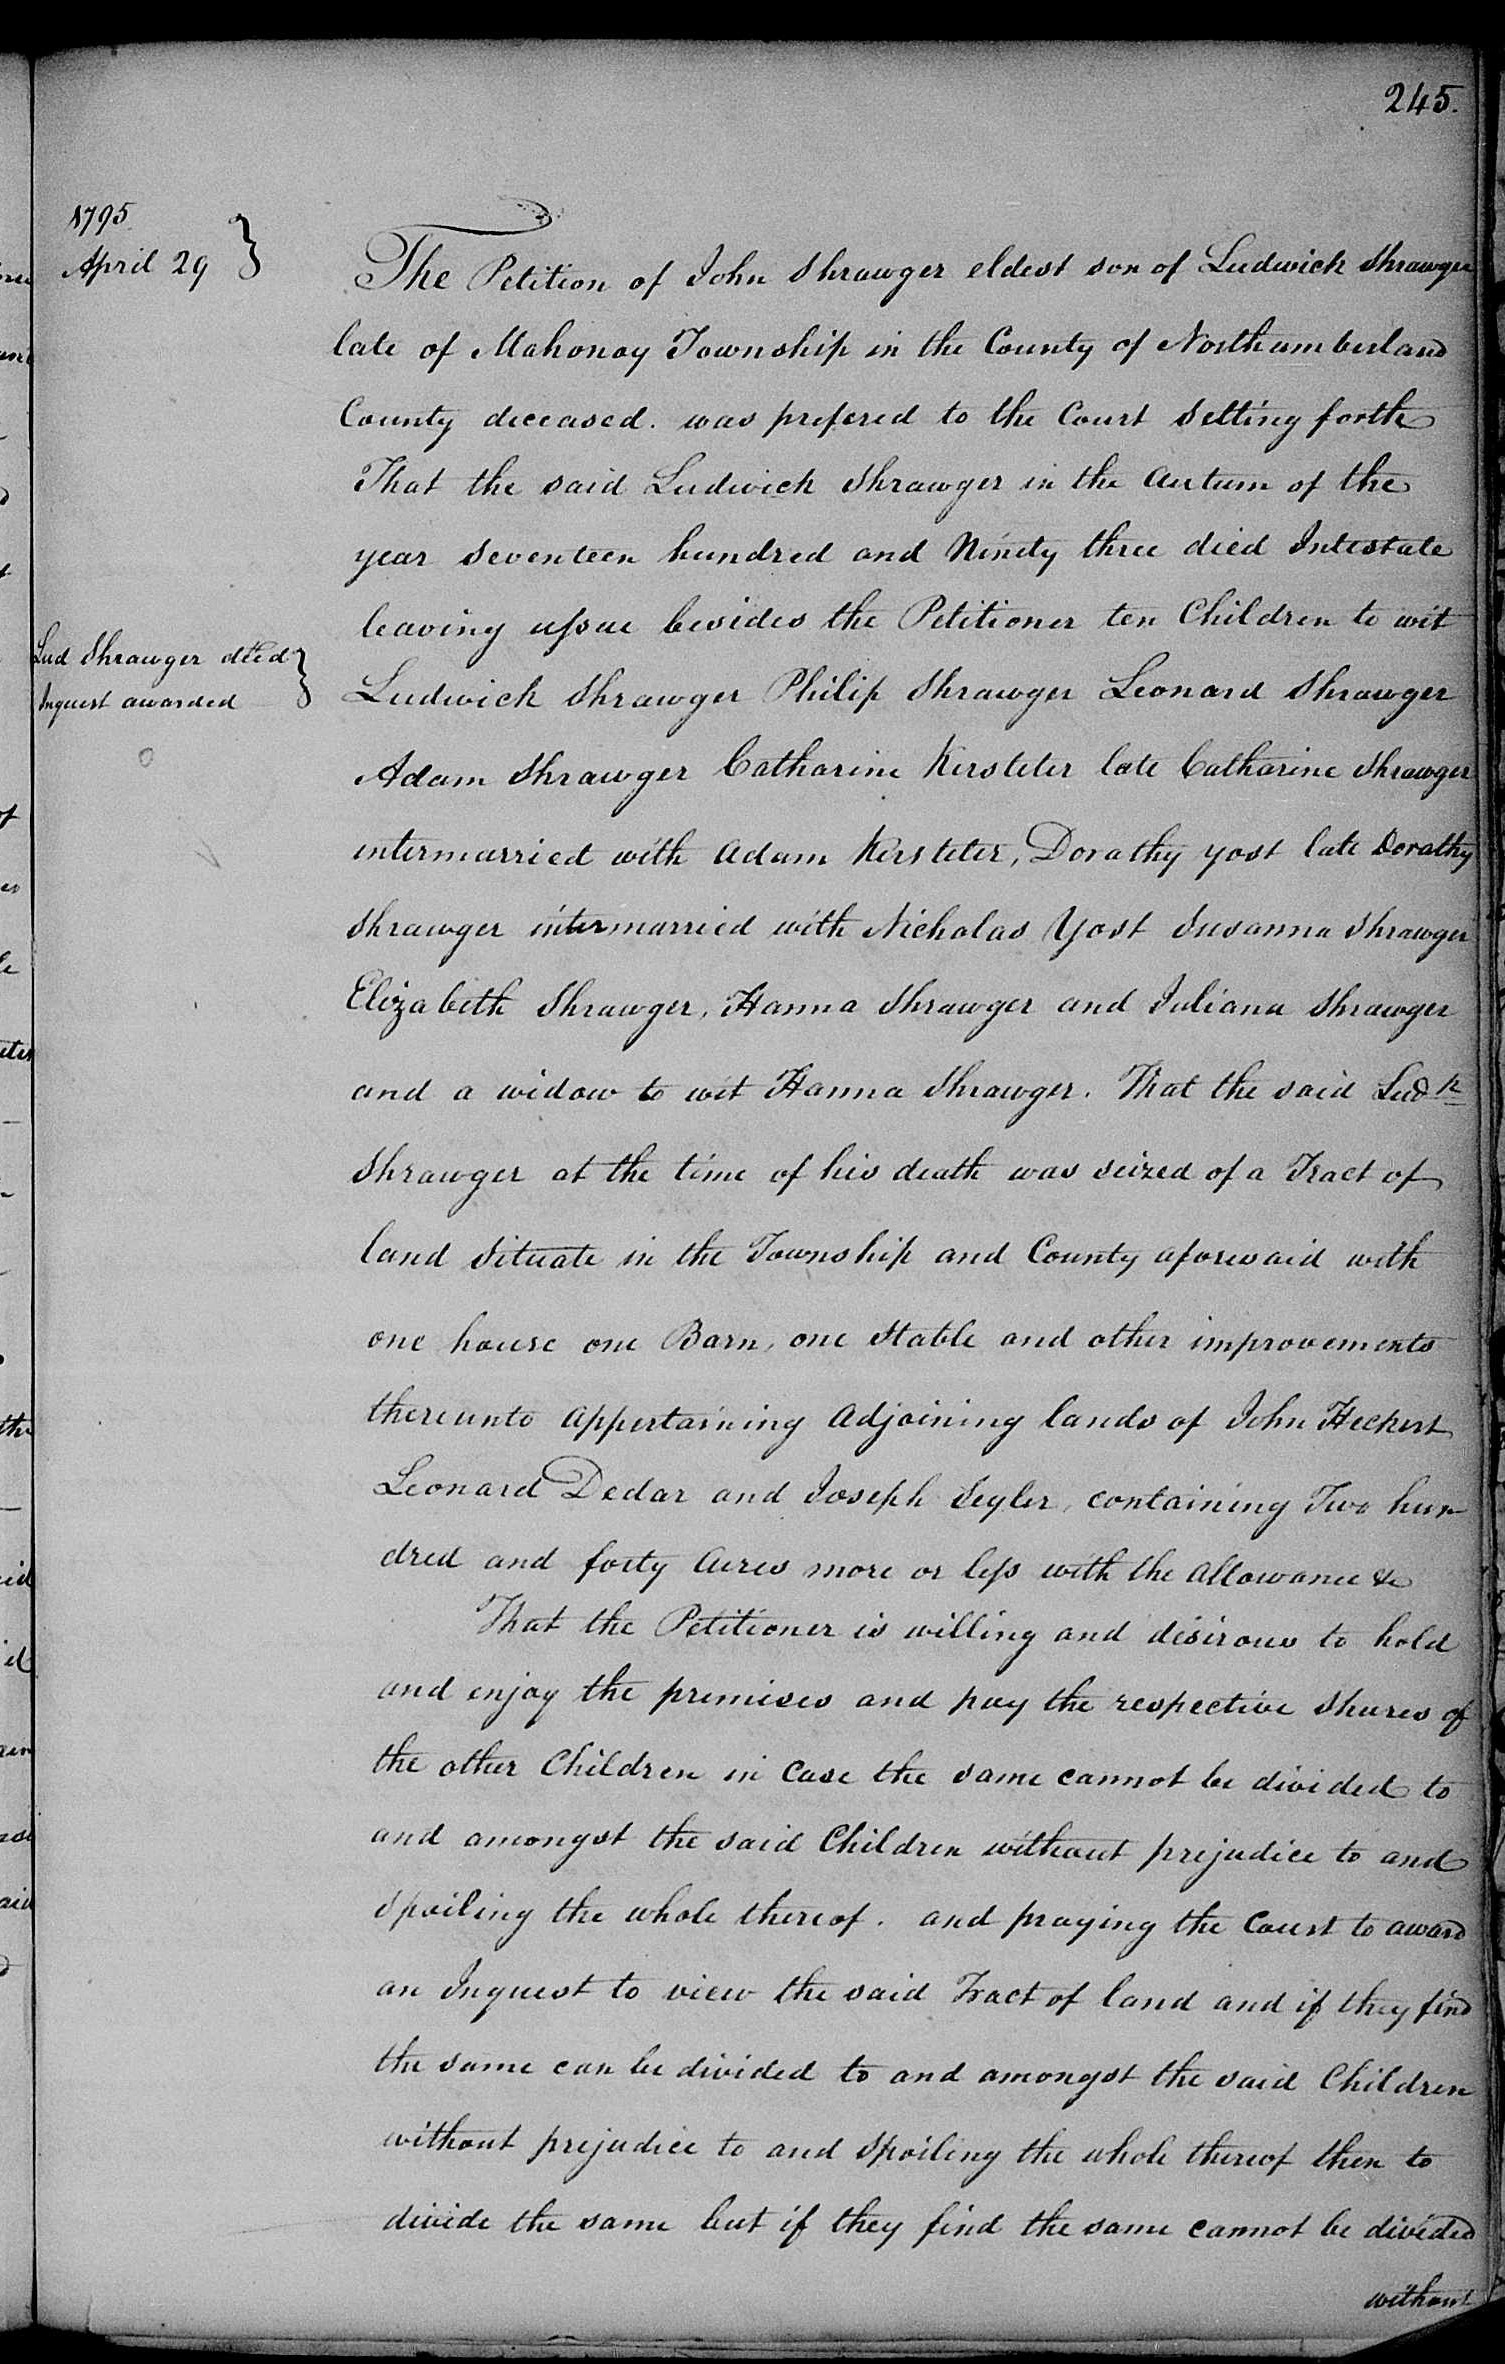 245.
1795
April 29
The Petition of John Shrawger eldest son of Ludwick Shrawger
late of Mahonoy Township in the County of Northumberland
County deceased. was prefered to the Court Setting forth
That the said Ludwick Shrawger in the Autum of the
year Seventeen hundred and Ninety three died Intestate
leaving issue besides the Petitioner ten Children to wit
Lud Shrawger decd
Inquest awarded
Ludwick Shrawger Philip Shrawger Leonard Shrawger
Adam Shrawger Catharine Kersteter late Catharine Shrawger
intermarried with Adam Kersteter, Dorathy yost late Dorathy
Shrawger intermarried with Nicholas Yost Susanna Shrawger
Elizabeth Shrawger, Hanna Shrawger and Juliana Shrawger
and a widow to wit Hanna Shrawger. That the said Ludk
Shrawger at the time of his death was seized of a Tract of
land Situate in the Township and County aforesaid with
one house one Barn, one Stable and other improvements
thereunto appertaining Adjoining lands of John Heckert
Leonard Dedar and Joseph Segler, containing Two hun
dred and forty Acres more or less with the Allowance &c
That the Petitioner is willing and desirous to hold
and enjoy the premises and pay the respective Shares of
the other Children in Case the same cannot be divided to
and amongst the said Children without prejudice to and
Spoiling the whole thereof. and praying the Court to award
an Inquest to view the said Tract of land and if they find
the same can be divided to and amongst the said Children
without prejudice to and Spoiling the whole thereof then to
divide the same but if they find the same cannot be divided
without